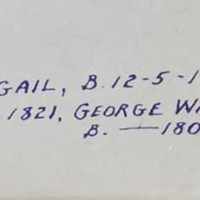 GAIL, B. 12-5-1
1821, GEORGE WA
B. — 180